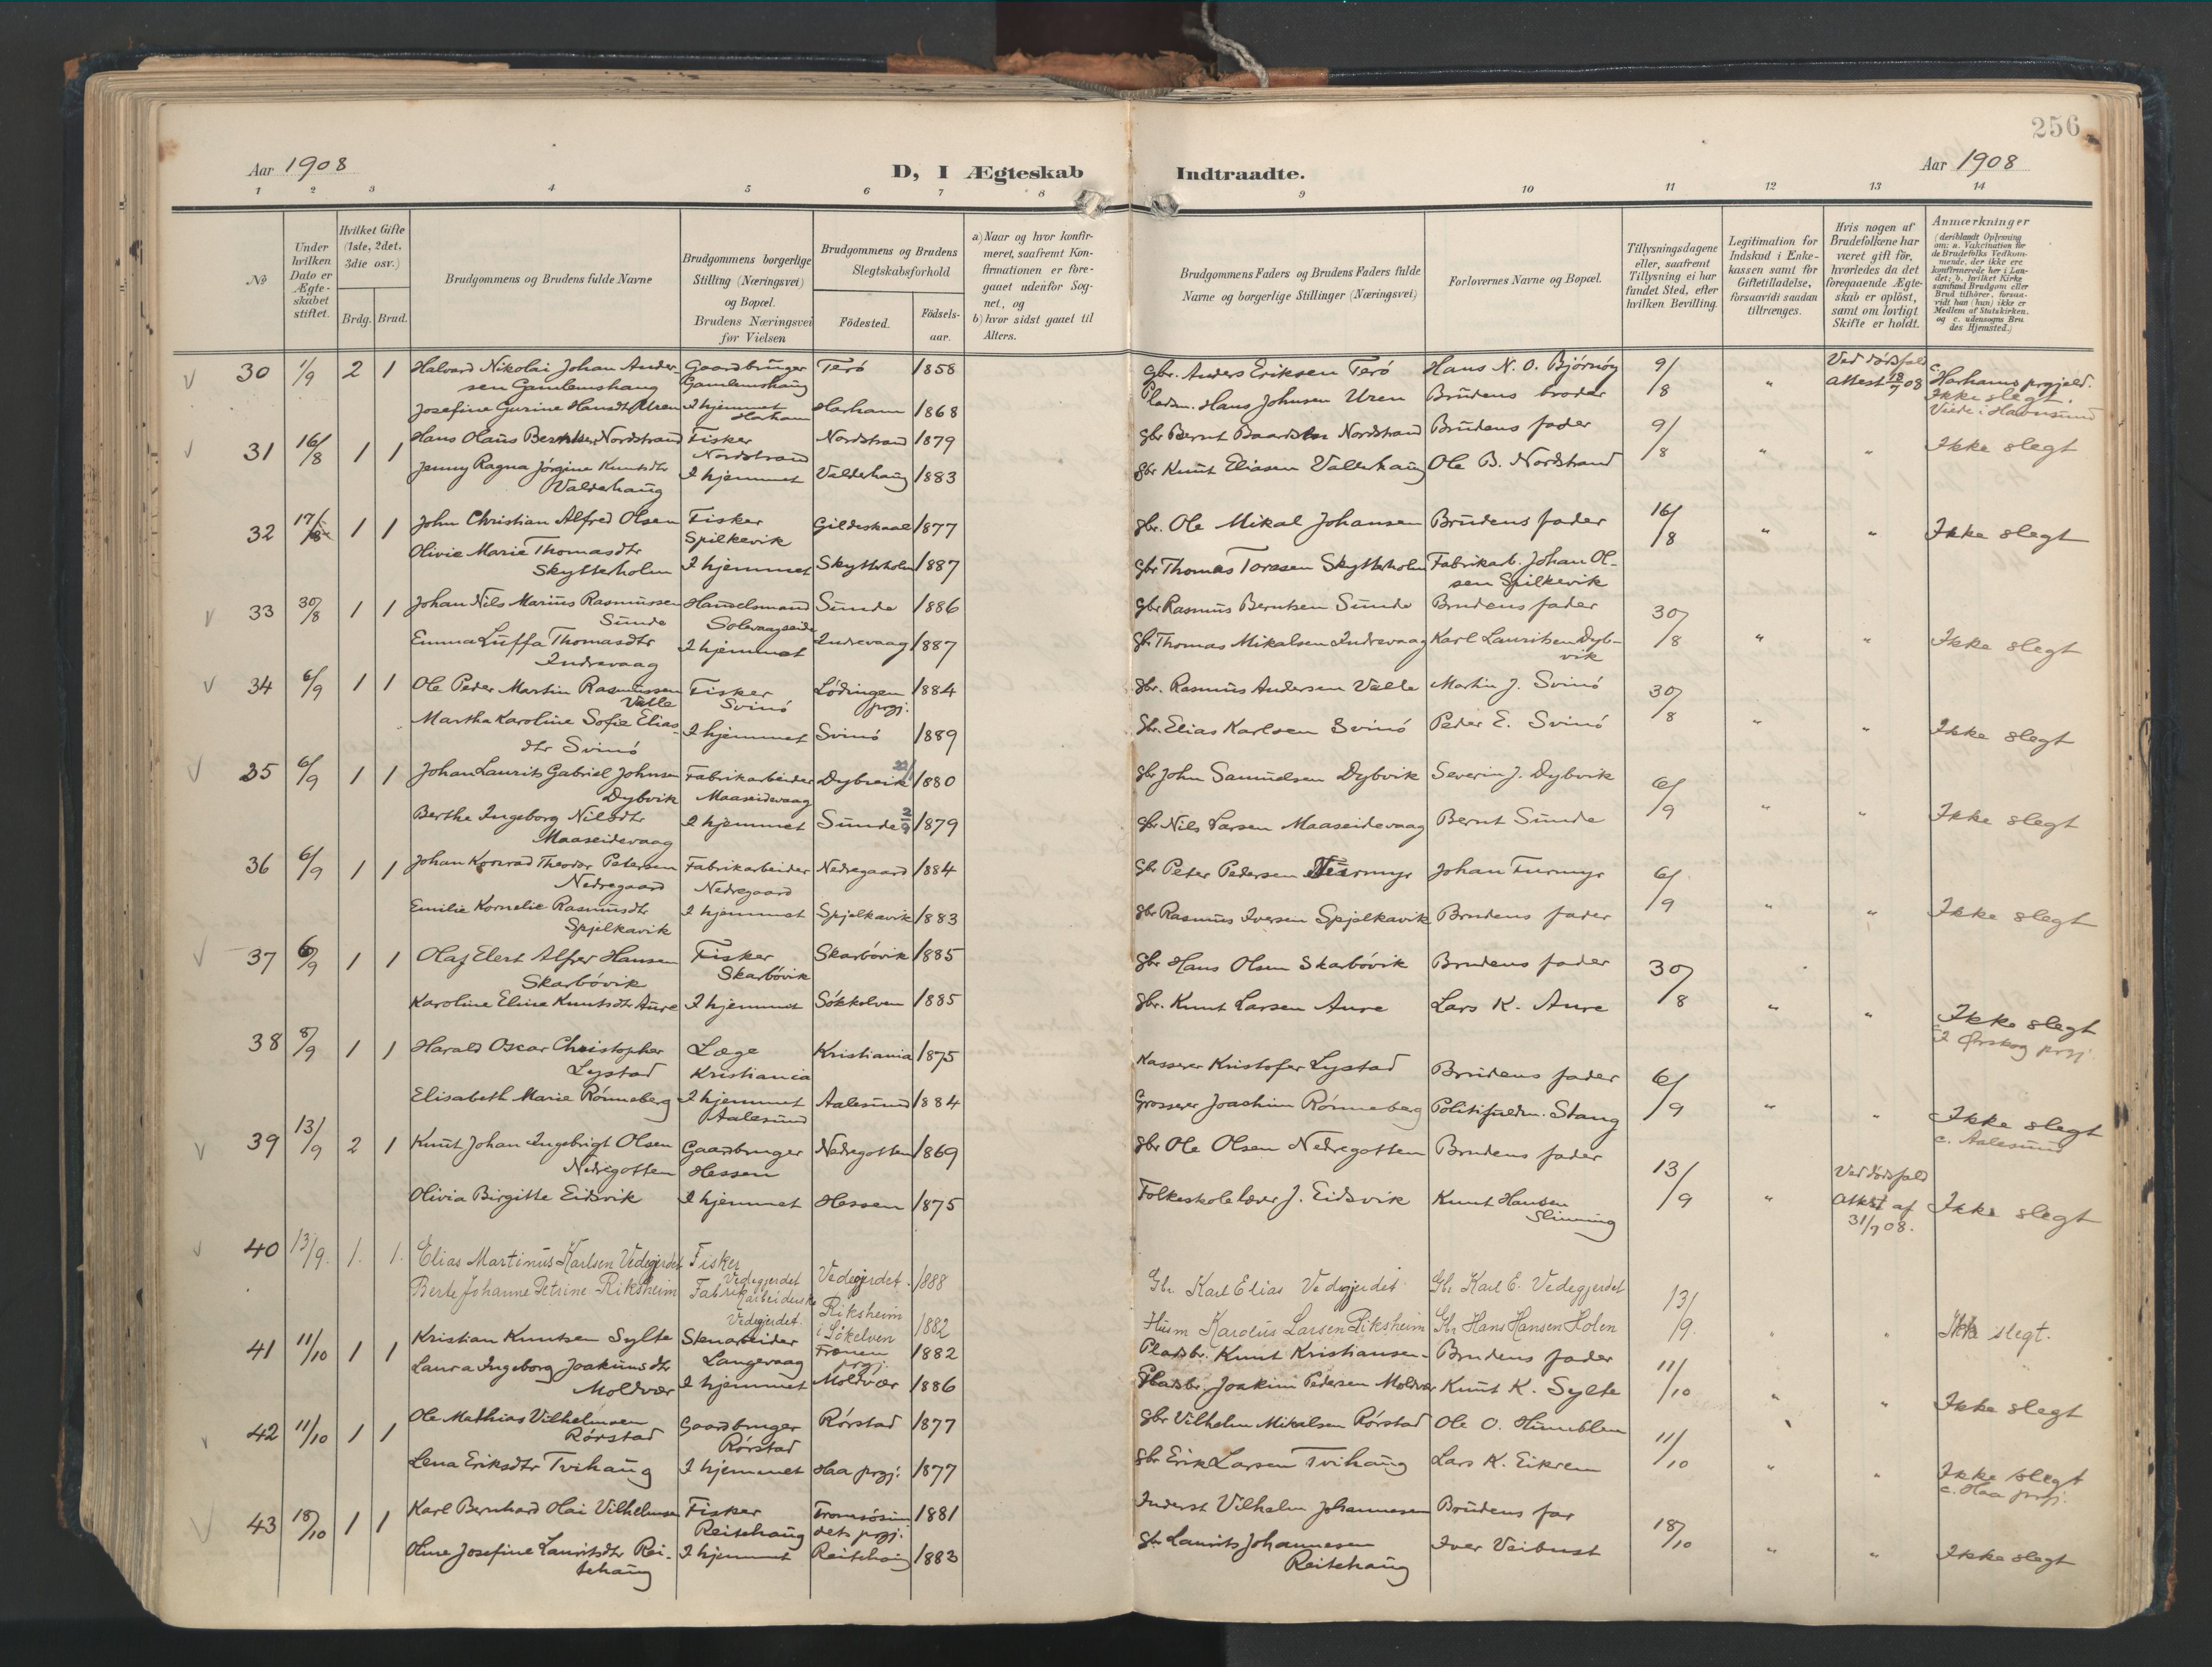 256
Aar 1908
D, I Ægteskab Indtraadte.
Aar 1908
1 2 3 4 5 6 7 8 9 10 11 12 13 14
No
Under hvilken Dato er Ægte-skabet stiftet.
Hvilket Gifte (1ste, 2det, 3die osv.)
Brdg. Brud.
Brudgommens og Brudens fulde Navne
Brudgommens borgerlige Stilling (Næringsvei) og Bopæl. Brudens Næringsvei før Vielsen
Brudgommens og Brudens Slegtskabsforhold
Fødested.
Fødsels-aar.
a) Naar og hvor konfir-meret, saafremt Kon-firmationen er fore-gaaet udenfor Sog-net, og
b) hvor sidst gaaet til Alters.
Brudgommens Faders og Brudens Faders fulde Navne og borgerlige Stillinger (Næringsvei)
Forlovernes Navne og Bopæl.
Tillysningsdagene eller, saafremt Tillysning ei har fundet Sted, efter hvilken Bevilling.
Legitimation for Indskud i Enke-kassen samt for Giftetilladelse, forsaavidt saadan tiltrænges.
Hvis nogen af Brudefolkene har været gift før, hvorledes da det foregaaende Ægte-skab er opløst, samt om lovligt Skifte er holdt.
Anmærkninger (deriblandt Oplysning om: a. Vakcination for de Brudefolks Vedkom-mende, der ikke ere konfirmerede her i Lan-det; b. hvilket Kirke-samfund Brudgom eller Brud tilhører, forsaa-vidt han (hun) ikke er Medlem af Statskirken. og c. udensogns Bru-des Hjemsted.)
30 1/9 2 1 Halvard Nikolai Johan Ander- Gaardbruger Terø 1858 gbr. Anders Eriksen Terø Hans N. O. Bjørnøy 9/8 " Ved dødsfald c.
sen Gamlemshaug Gamlemshaug attest 18/7 08 Harhams prgjeld.
Josefine Gurine Hansdtr Uren I hjemmet Harham 1868 Pladsm. Hans Johnsen Uren Brudens broder Ikke slegt.
Harham Viede i Havnsund
31 16/8 1 1 Hans Olaus Berntsen Nordstrand Fisker Nordstrand 1879 gbr Bernt Baardsen Nordstrand Brudens fader 9/8 " " Ikke slegt
Nordstrand
Jenny Ragna Jørgine Knutsdtr I hjemmet Valderhaug 1883 gbr Knut Eliasen Valderhaug Ole B. Nordstrand
Valderhaug
32 17/8 1 1 John Christian Alfred Olsen Fisker Gildeskaal 1877 gbr. Ole Mikal Johansen Brudens fader 16/8 " " Ikke slegt
Spilkevik
Olivie Marie Thomasdtr I hjemmet Skytterholm 1887 gbr Thomas Torasen Skytterholm Fabrikarb. Johan Ol-
Skytterholm sen Spilkevik
33 30/8 1 1 Johan Nils Marius Rasmussen Handelsmand Sunde 1886 gbr Rasmus Berntsen Sunde Brudens fader 30/8 " " Ikke slegt
Sunde Solevaagseide
Emma Luffa Thomasdtr I hjemmet Indrevaag 1887 gbr Thomas Mikalsen Indrevaag Karl Lauritsen Dyb-
Indrevaag vik
34 6/9 1 1 Ole Peder Martin Rasmussen Fisker Lødingen 1884 gbr. Rasmus Andersen Valle Martin J. Svinø 30/8 " " Ikke slegt
Valle Svinø prgj.
Martha Karoline Sofie Elias- I hjemmet Svinø 1889 gbr. Elias Karlsen Svinø Peder E. Svinø
dtr Svinø
35 6/9 1 1 Johan Laurits Gabriel Johnsen Fabrikarbeider Dybvik 22/1 1880 gbr John Samuelsen Dybvik Severin J. Dybvik 6/9 " " Ikke slegt
Dybvik Maaseidevaag
Berthe Ingeborg Nilsdtr I hjemmet Sunde 2/9 1879 gbr Nils Larsen Maaseidevaag Bernt Sunde
Maaseidevaag
36 6/9 1 1 Johan Konrad Theodor Petersen Fabrikarbeider Nedregaard 1884 gbr Peter Pedersen Furmyr Johan Furmyr 6/9 " " Ikke slegt
Nedregaard Nedregaard
Emilie Kornelie Rasmusdtr I hjemmet Spjelkavik 1883 gbr Rasmus Iversen Spjelkavik Brudens fader
Spjelkavik
37 6/9 1 1 Olaf Elert Alfred Hansen Fisker Skarbøvik 1885 gbr Hans Olsen Skarbøvik Brudens fader 30/8 " " Ikke slegt
Skarbøvik Skarbøvik
Karoline Eline Knutsdtr Aure I hjemmet Søkkelven 1885 gbr. Knut Larsen Aure Lars K. Aure
c. I Ørskog prgj.
38 8/9 1 1 Harald Oscar Christopher Læge Kristiania 1875 Kasserer Kristofer Lystad Brudens fader 6/9 " " Ikke slegt
Lystad Kristiania c. Aalesund
Elisabeth Marie Rønneberg I hjemmet Aalesund 1884 Grosserer Joachim Rønneberg Politifuldm. Stang
Aalesund
39 13/9 2 1 Knut Johan Ingebrigt Olsen Gaardbruger Nedregotten 1869 gbr Ole Olsen Nedregotten Brudens fader 13/9 " Ved dødsfald Ikke slegt
Nedregotten Hessen
Olivia Birgitte Eidsvik I hjemmet Hessen 1875 Folkeskolelærer J. Eidsvik Knut Hansen Attest af
Slinning 31/7 08.
40 13/9. 1. 1. Elias Martinus Karlsen Vedegjerdet Fisker Vedegjerdet. 1888 Gbr. Karl Elias Vedegjerdet Gbr Karl E. Vedegjerdet 13/9. " " Ikke slegt.
Vedegjerdet
Berte Johanne Petrine Riksheim Fabrikarbeiderske Riksheim 1882 Husm Karolus Larsen Riksheim Gbr Hans Hansen Holen
Vedegjerdet. i Søkelven
41 11/10 1 1 Kristian Knutsen Sylte Skoarbeider Frænen 1882 Pladsbr. Knut Kristiansen Brudens fader 11/10 " " Ikke slegt
Langevaag prgj.
Laura Ingeborg Joakimsdtr I hjemmet Moldvær 1886 Pladsbr. Joakim Pedersen Moldvær Knut K. Sylte
Moldvær
42 11/10 1 1 Ole Mathias Vilhelmsen Gaardbruger Rørstad 1877 gbr Vilhelm Mikalsen Rørstad Ole O. Humblen 11/10 " " Ikke slegt
Rørstad Rørstad c. Haa prgj.
Lena Eriksdtr Tvihaug I hjemmet Haa prgj. 1877 gbr Erik Larsen Tvihaug Lars K. Eikrem
43 18/10 1 1 Karl Bernhard Olai Vilhelmsen Fisker Tromsøsun- 1881 Inderst Vilhelm Johannesen Brudens far 18/10 " " Ikke slegt
Reitehaug dets prgj.
Oline Josefine Lauritsdtr Rei- I hjemmet Reitehaug 1883 gbr Laurits Johannesen Iver Veibust
tehaug Reitehaug